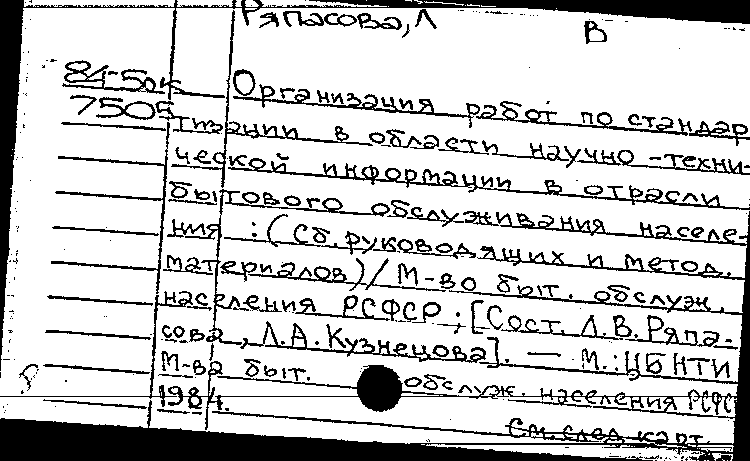 Ряпасова, Л В
84-50к Организация работ по стандар-
7505 тизации в области научно-техни-
ческой информации в отрасли
бытового обслуживания населе-
ния : (Сб. руководящих и метод.
материалов) / М-во быт. обслуж.
населения РСФСР ; [Сост. Л.В. Ряпа-
сова, Л.А. Кузнецова]. — М. : ЦБНТИ
М-ва быт. обслуж. населения РСФС
1984.
См. след. карт.